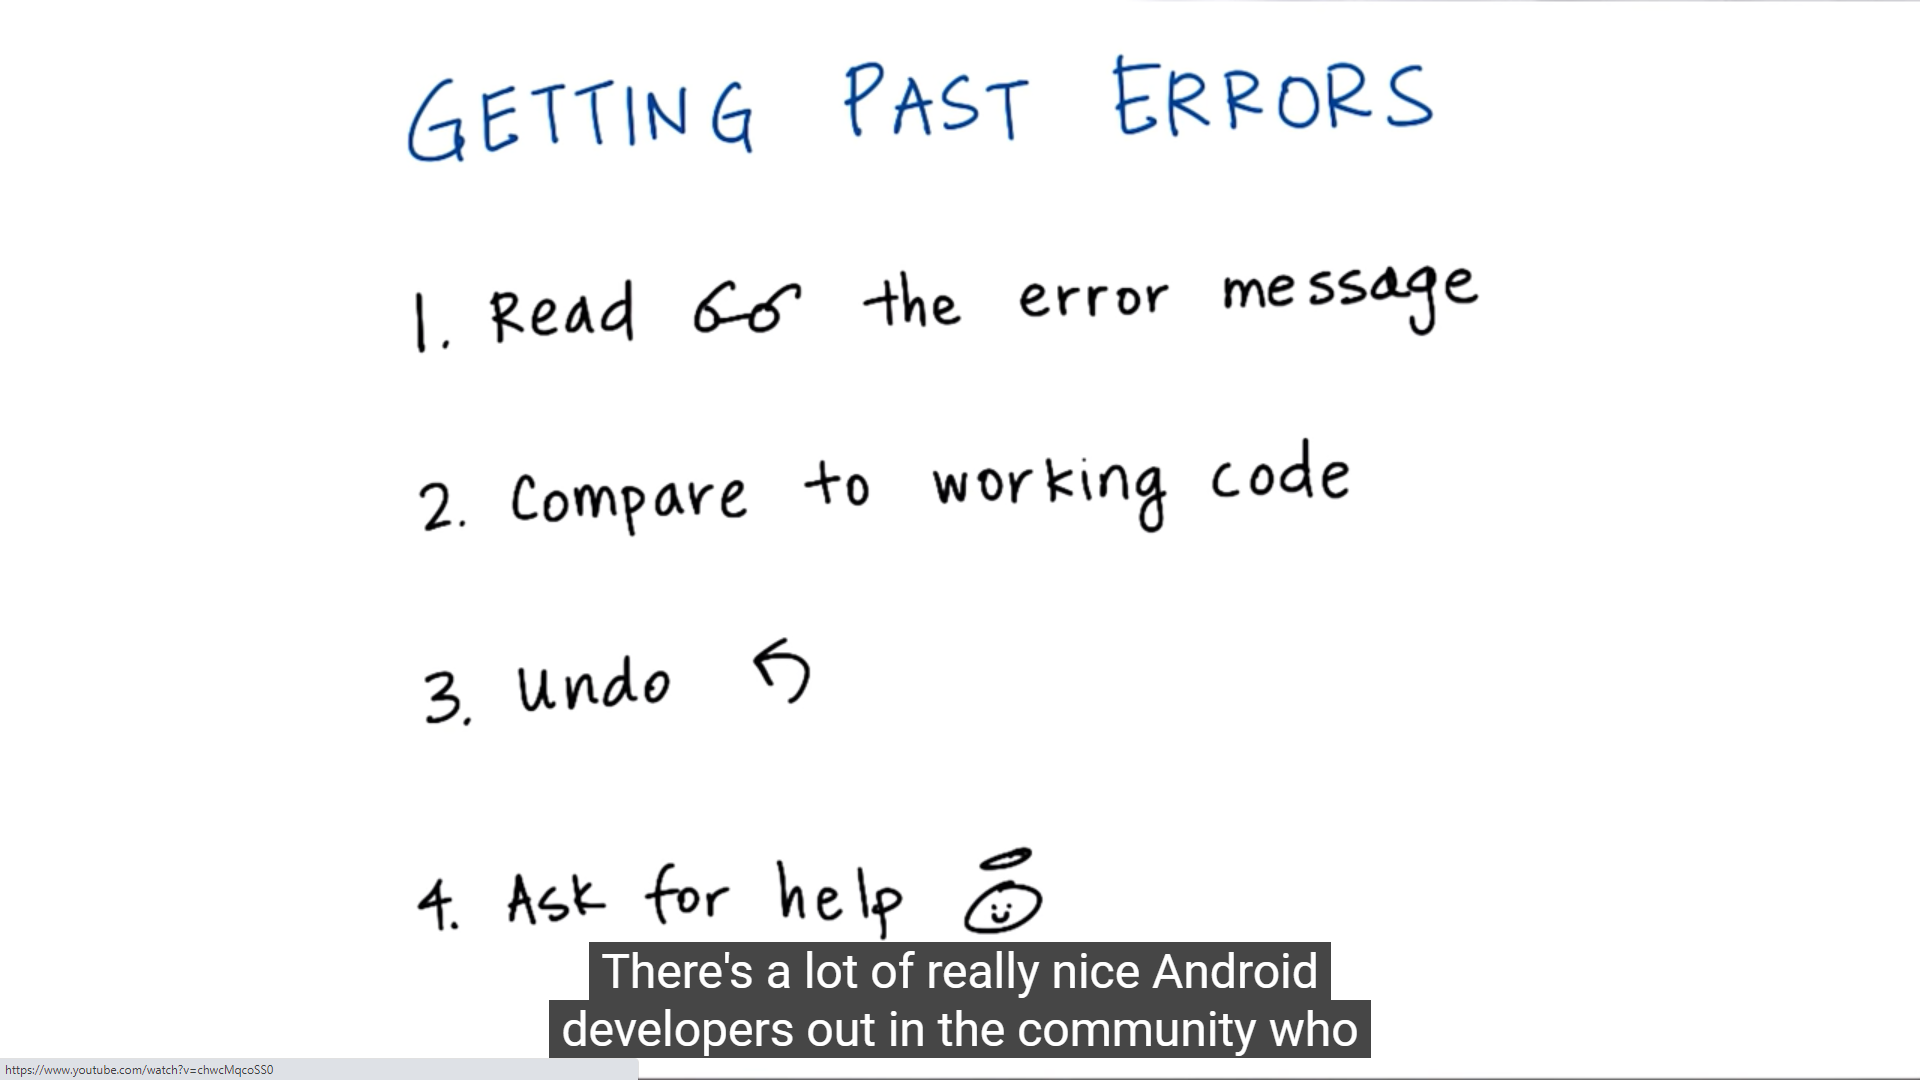 GETTING PAST ERRORS
1. Read the error message
2. Compare to working code
3. Undo
4. Ask for help
There's a lot of really nice Android
developers out in the community who
https://www.youtube.com/watch?v=chwcMqcoSS0